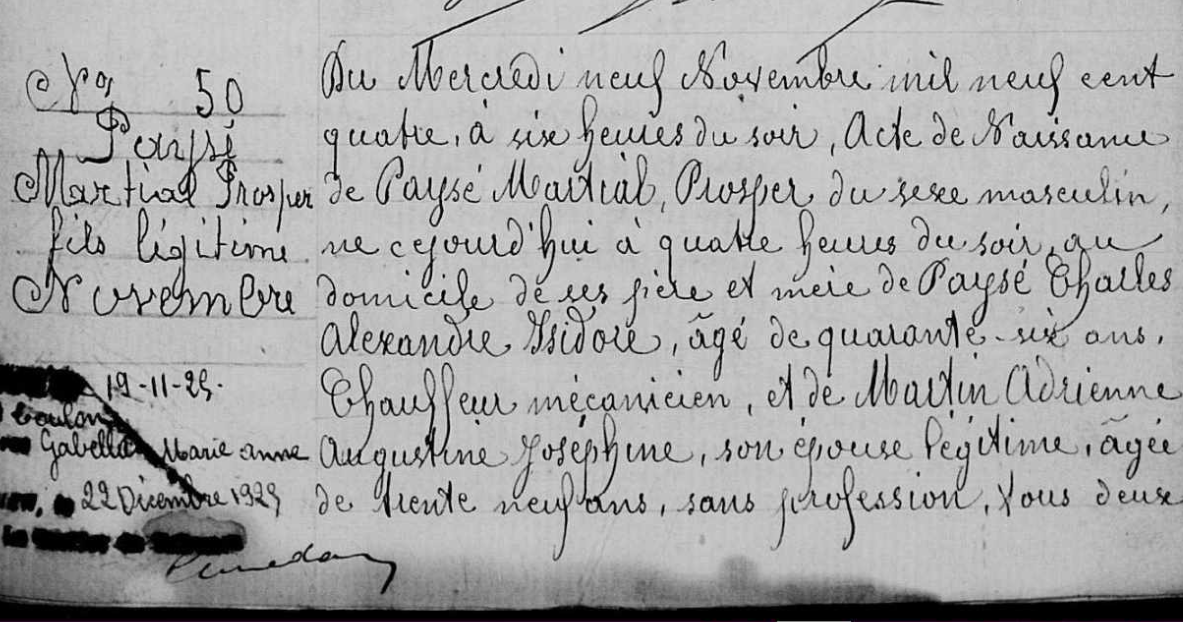 N° 50
Paysé
Martial Prosper
fils légitime
Novembre
19-11-25.
Toulon
Gabella Marie anne
22 Décembre 1925
Du Mercredi neuf Novembre mil neuf cent
quatre, à six heures du soir, Acte de Naissance
de Paysé Martial, Prosper, du sexe masculin,
né cejourd'hui à quatre heures du soir, au
domicile de ses père et mère de Paysé Charles
Alexandre Isidore, âgé de quarante-six ans,
Chauffeur mécanicien, et de Martin Adrienne
Augustine Joséphine, son épouse légitime, âgée
de trente neuf ans, sans profession. Tous deux